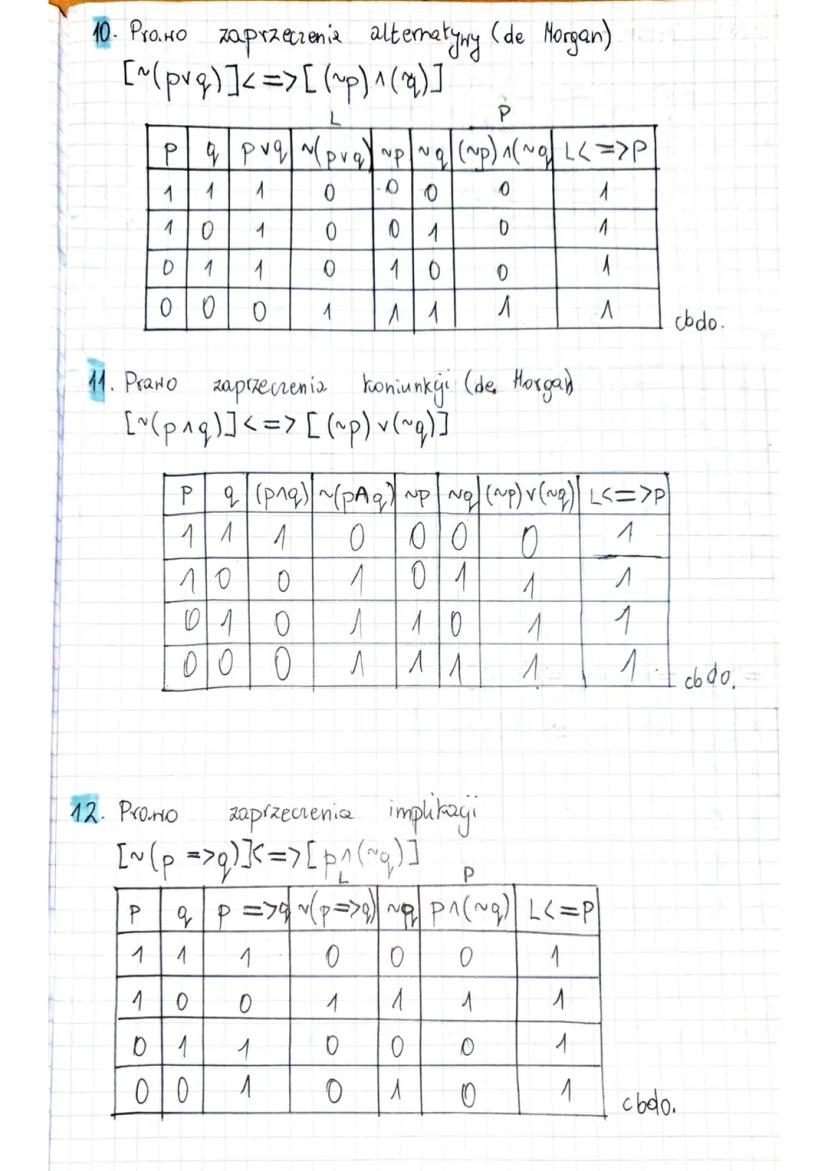 10. Prawo zaprzeczenia alternatywy (de Morgan)
[~(p∨q)]<=>[(~p)∧(~q)]
L P
p q p∨q ~(p∨q) ~p ~q (~p)∧(~q L<=>P
1 1 1 0 0 0 0 1
1 0 1 0 0 1 0 1
0 1 1 0 1 0 0 1
0 0 0 1 1 1 1 1
cbdo.
11. Prawo zaprzeczenia koniunkcji (de Morgan)
[~(p∧q)]<=>[(~p)∨(~q)]
p q (p∧q) ~(p∧q) ~p ~q (~p)∨(~q) L<=>P
1 1 1 0 0 0 0 1
1 0 0 1 0 1 1 1
0 1 0 1 1 0 1 1
0 0 0 1 1 1 1 1
cbdo.
12. Prawo zaprzeczenia implikacji
[~(p =>q)]<=>[p∧(~q)]
L P
p q p =>q ~(p=>q) ~q p∧(~q) L<=P
1 1 1 0 0 0 1
1 0 0 1 1 1 1
0 1 1 0 0 0 1
0 0 1 0 1 0 1
cbdo.